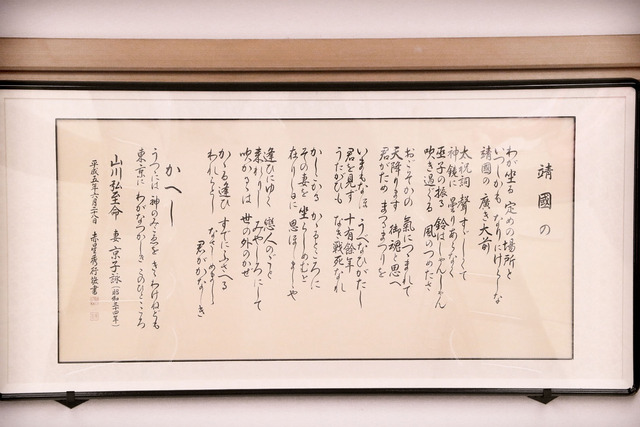 靖國の
わが坐る 定めの場所と
いつしかも なりにけらしな
靖國の 廣き大前
太祝詞 聲すみしくて
神鏡に 曇りあらなく
巫子の振る 鈴はしゃんしゃん
吹き過ぐる 風のつめたさ
おごそかの 氣につつまれて
天降ります 御魂と思へ
君がため まつるまつりを
いまもなほ うべなひがたし
君を見ず 十有餘年
うたがひも なき戰死なれ
かしこかる かかるところに
その妻を 坐らしめむと
在りし日に 思ほしましや
逢ひにゆく 戀人のごと
来れりし みやしろにして
吹かるるは 世の外のかぜ
かかる逢ひ すでにふさへる
われとしも
君がかなしき
かへし
うつつには 神のみこゑを ききわけねども
東京に わがなつかしき このひとところ
山川弘至命 妻 京子詠(昭和三十四年)
平成五年六月二十六日 赤星秀行 謹書